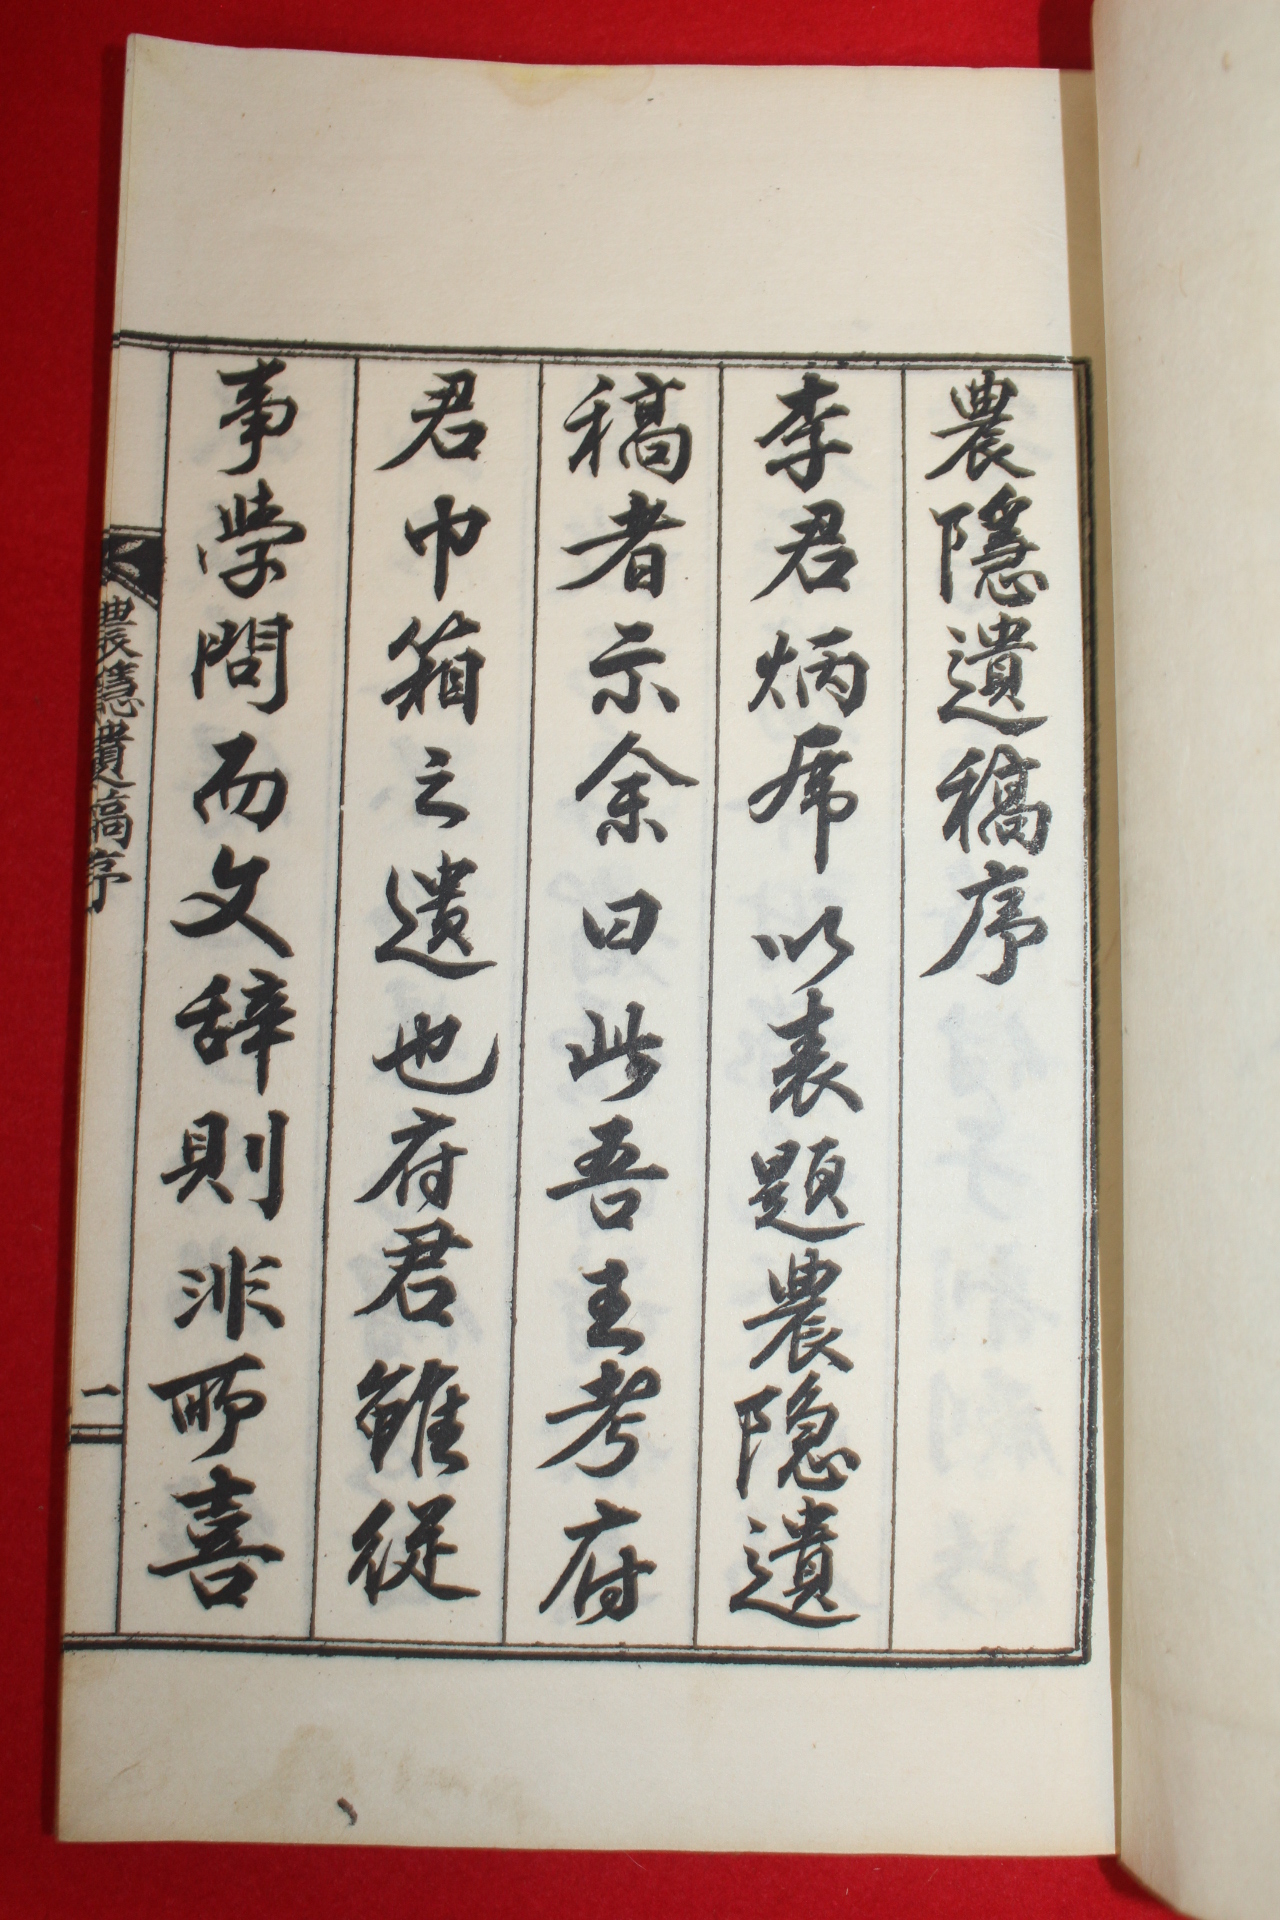 農隱遺稿序
李君炳席以表題農隱遺
稿者示余曰此吾王考府
君巾箱之遺也府君雖從
事學問而文辞則非所喜
農隱遺稿序
一